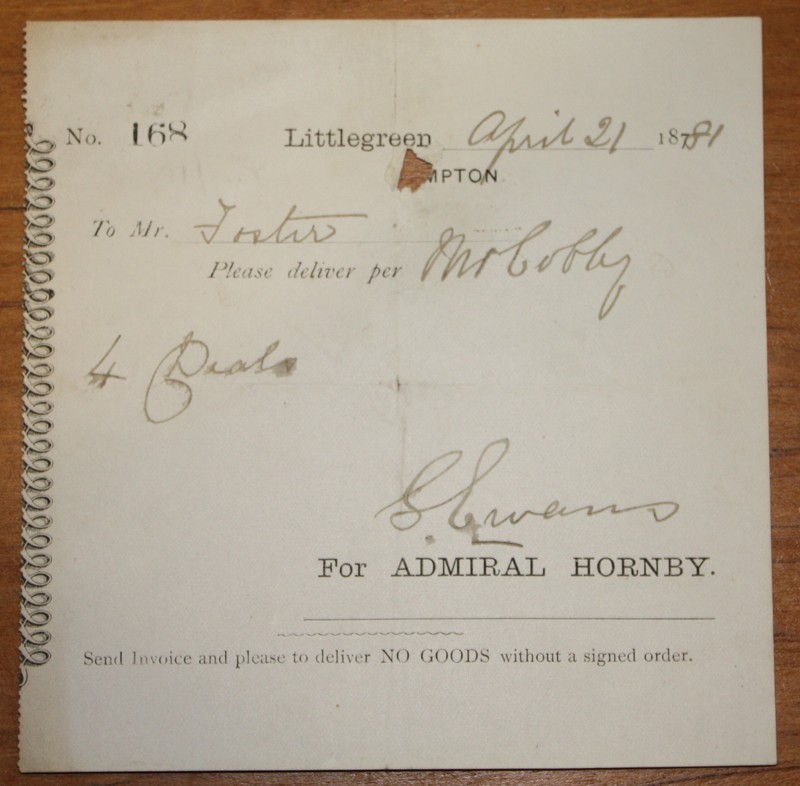 No. 168 Littlegreen April 21 18781
MPTON.
To Mr. Foster
Please deliver per Mr Cobby
4 Deals
G. Ewans
For ADMIRAL HORNBY.
Send Invoice and please to deliver NO GOODS without a signed order.